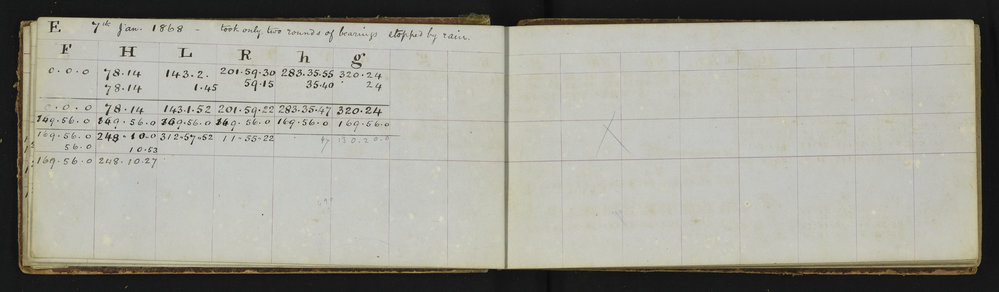 E 7th Jan. 1868 - took only two rounds of bearings stopped by rain.
F H L R h g
0.0.0 78.14 143.2. 201.59.30 283.35.55 320.24
78.14 1.45 59.15 35.40 24
0.0.0 78.14 143.1.52 201.59.22 283.35.47 320.24
169.56.0 169.56.0 169.56.0 169.56.0 169.56.0 169.56.0
169.56.0 248.10.0 312-57-52 11-55-22 47 130.20.0
56.0 10.53
169.56.0 248.10.27